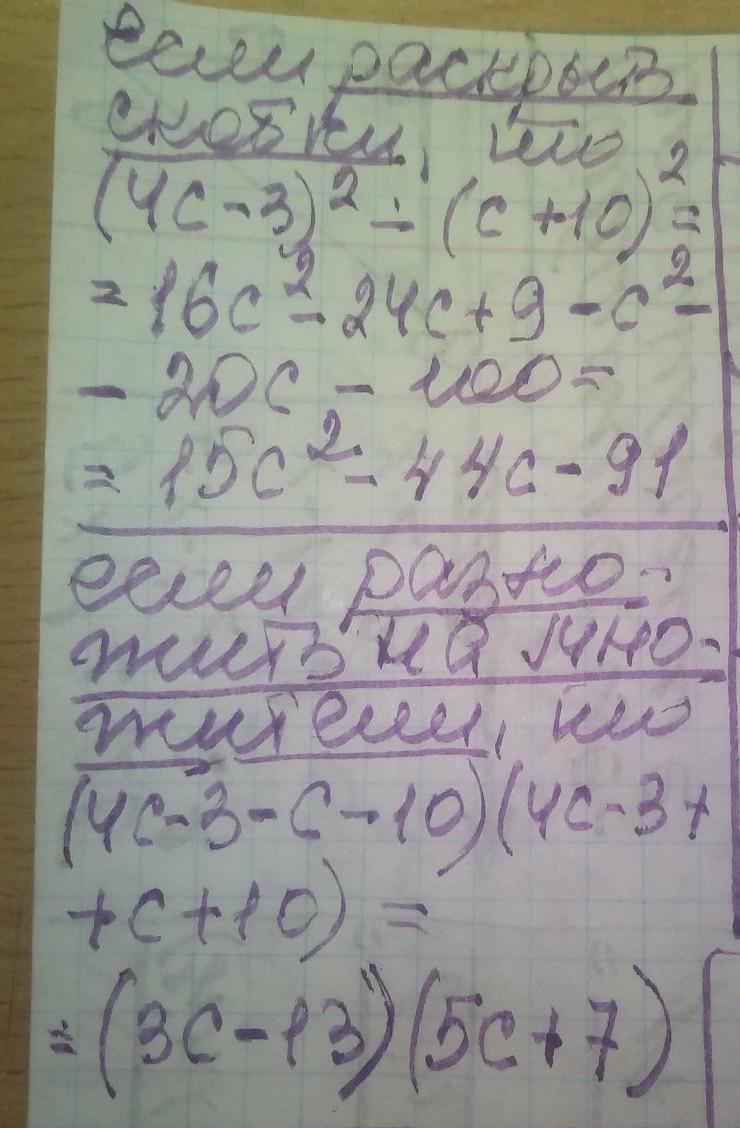 если раскрыть
скобки, то
(4c-3)² - (c+10)² =
= 16c² - 24c + 9 - c² -
- 20c - 100 =
= 15c² - 44c - 91
если разло-
жить на мно-
жители, то
(4c-3-c-10)(4c-3+
+c+10) =
= (3c-13)(5c+7)